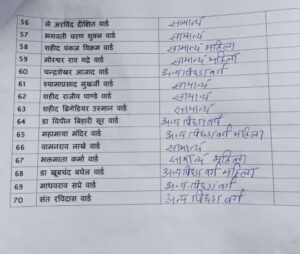 56 ले अरविंद दीक्षित वार्ड सामान्य
57 भगवती चरण शुक्ल वार्ड सामान्य
58 शहीद पंकज विक्रम वार्ड सामान्य महिला
59 मोरेश्वर राव गद्रे वार्ड सामान्य महिला
60 चन्द्रशेखर आजाद वार्ड अन्य पिछड़ा वर्ग
61 श्यामाप्रसाद मुखर्जी वार्ड सामान्य
62 शहीद राजीव पाण्डे वार्ड सामान्य
63 शहीद ब्रिगेडियर उस्मान वार्ड सामान्य
64 डा विपीन बिहारी सूर वार्ड अन्य पिछड़ा वर्ग
65 महामाया मंदिर वार्ड अन्य पिछड़ा वर्ग महिला
66 वामनराव लाखे वार्ड सामान्य
67 भक्तमाता कर्मा वार्ड सामान्य महिला
68 डा खूबचंद बघेल वार्ड अन्य पिछड़ा वर्ग महिला
69 माधवराव सप्रे वार्ड अन्य पिछड़ा वर्ग
70 संत रविदास वार्ड अन्य पिछड़ा वर्ग